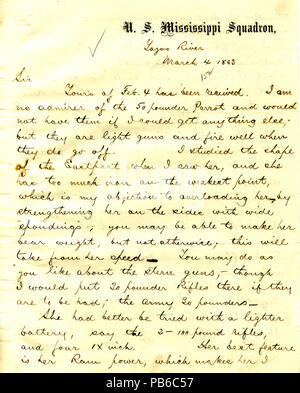 U. S. Mississippi Squadron,
Yazoo River
March 4 1863
Sir
Yours of Feb. 4 has been received. I am
no admirer of the 50 pounder Parrot and would
not have them if I could get anything else;
but they are light guns and fire well when
they do go off. I studied the shape
of the Eastport when I saw her, and she
has too much iron on the weakest point,
which is my objection to overloading her. By
strengthening her on the sides with wide
spondings; you may be able to make her
bear weight, but not otherwise; this will
take from her speed — You may do as
you like about the stern guns; though
I would put 20 pounder Rifles there if they
are to be had; the army 20 pounders —
She had better be tried with a lighter
battery, say the 2-100 pound rifles,
and four IX inch. Her best feature
is her Ram power, which makes her I
alamy
Image ID: PB6C57
www.alamy.com